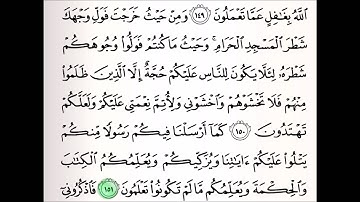 ٱللَّهُ بِغَٰفِلٍ عَمَّا تَعْمَلُونَ ١٤٩ وَمِنْ حَيْثُ خَرَجْتَ فَوَلِّ وَجْهَكَ
شَطْرَ ٱلْمَسْجِدِ ٱلْحَرَامِ ۚ وَحَيْثُ مَا كُنتُمْ فَوَلُّوا۟ وُجُوهَكُمْ
شَطْرَهُۥ لِئَلَّا يَكُونَ لِلنَّاسِ عَلَيْكُمْ حُجَّةٌ إِلَّا ٱلَّذِينَ ظَلَمُوا۟
مِنْهُمْ فَلَا تَخْشَوْهُمْ وَٱخْشَوْنِى وَلِأُتِمَّ نِعْمَتِى عَلَيْكُمْ وَلَعَلَّكُمْ
تَهْتَدُونَ ١٥٠ كَمَآ أَرْسَلْنَا فِيكُمْ رَسُولًا مِّنكُمْ
يَتْلُوا۟ عَلَيْكُمْ ءَايَٰتِنَا وَيُزَكِّيكُمْ وَيُعَلِّمُكُمُ ٱلْكِتَٰبَ
وَٱلْحِكْمَةَ وَيُعَلِّمُكُم مَّا لَمْ تَكُونُوا۟ تَعْلَمُونَ ١٥١ فَٱذْكُرُونِىٓ